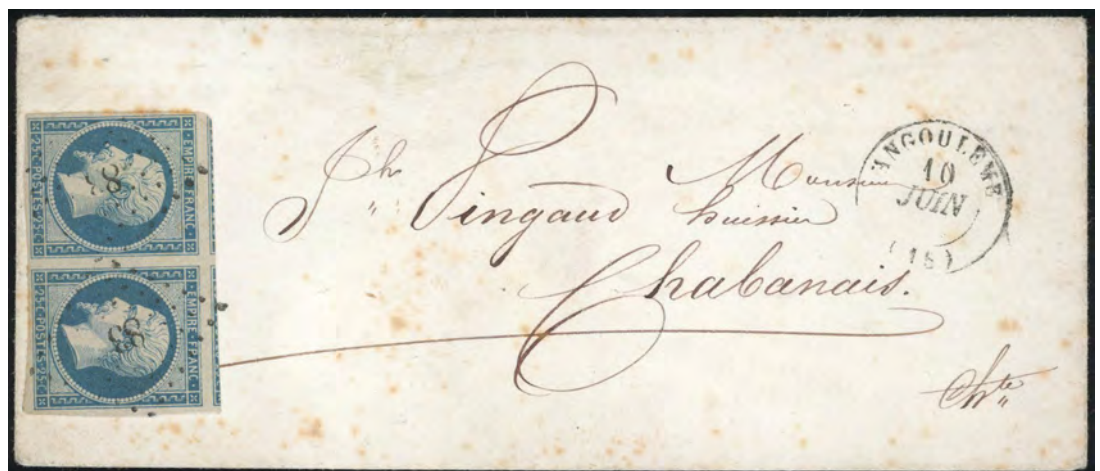 EMPIRE · FRANC ·
25C · POSTES · 25C
83
EMPIRE · FRANC ·
25C · POSTES · 25C
83
Monsieur
Jph Pingaud huissier
Chabanais.
Chte
ANGOULEME
10
JUIN
(15)